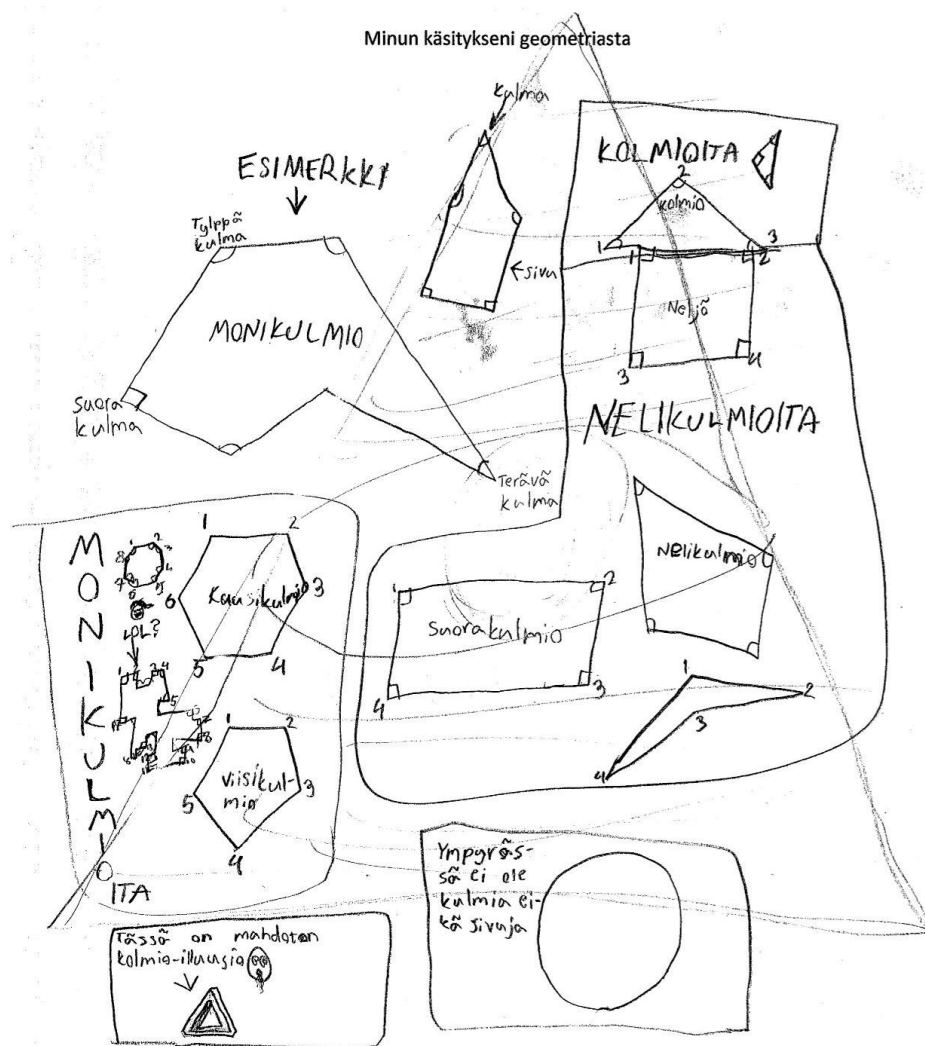 Minun käsitykseni geometriasta
kulma
ESIMERKKI
Tylppä
kulma
MONIKULMIO
Suora
kulma
Terävä
kulma
sivu
KOLMIOITA
2
kolmio
1
3
1
2
Neljö
3
4
NELIKULMIOITA
Nelikulmio
1
2
Suorakulmio
4
3
1
2
3
4
MONIKULMIOITA
1
2
3
4
5
6
Kuusikulmio
LOL?
1
2
3
4
5
viisikul-
mio
Ympyräs-
sä ei ole
kulmia ei-
kä sivuja
Tässä on mahdoton
kolmio-illuusio